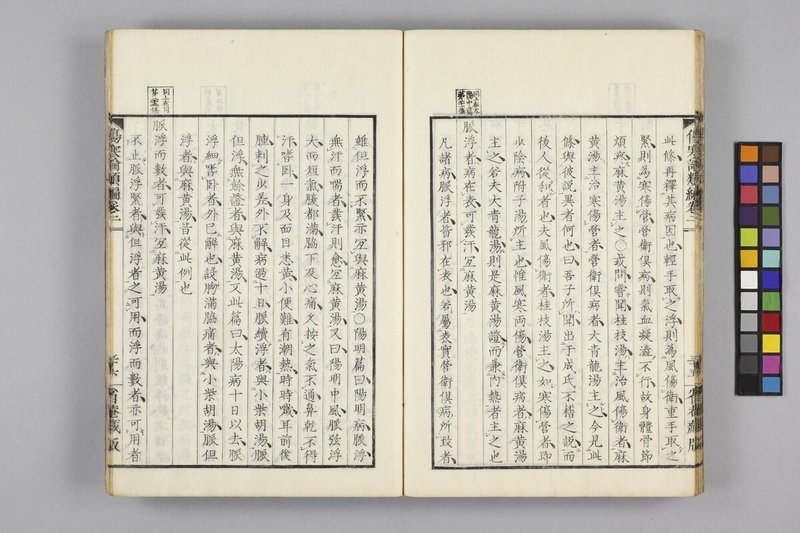 此條再釋其病因也輕手取之浮則為風傷衛重手取之
緊則為寒傷營營衛俱病則氣血凝滀不行故身體骨節
煩疼麻黃湯主之〇或問嘗聞桂枝湯主治風傷衛者麻
黃湯主治寒傷營者營衛俱病者大青龍湯主之今見此
條與彼說異者何也曰吾子所聞出于成氏不稽之說而
後人從和者也夫風傷衛者桂枝湯主之如寒傷營者即
少陰病附子湯所主也惟風寒兩傷營衛俱病者麻黃湯
主之若夫大青龍湯則是麻黃湯證而兼內熱者主之也
脈浮者病在表可發汗宜麻黃湯
凡諸病脈浮者皆邪在表也若屬表實營衛俱病所致者
雖但浮而不緊亦宜與麻黃湯〇陽明篇曰陽明病脈浮
無汗而喘者發汗則愈宜麻黃湯又曰陽明中風脈弦浮
大而短氣腹都滿脇下及心痛久按之氣不通鼻乾不得
汗嗜臥一身及面目悉黃小便難有潮熱時時噦耳前後
腫刺之少差外不解病過十日脈續浮者與小柴胡湯脈
但浮無餘證者與麻黃湯又此篇曰太陽病十日以去脈
浮細嗜臥者外已解也設胸滿脇痛者與小柴胡湯脈但
浮者與麻黃湯皆從此例也
脈浮而數者可發汗宜麻黃湯
不止脈浮緊者與但浮者之可用而浮而數者亦可用者
傷寒論類編卷二